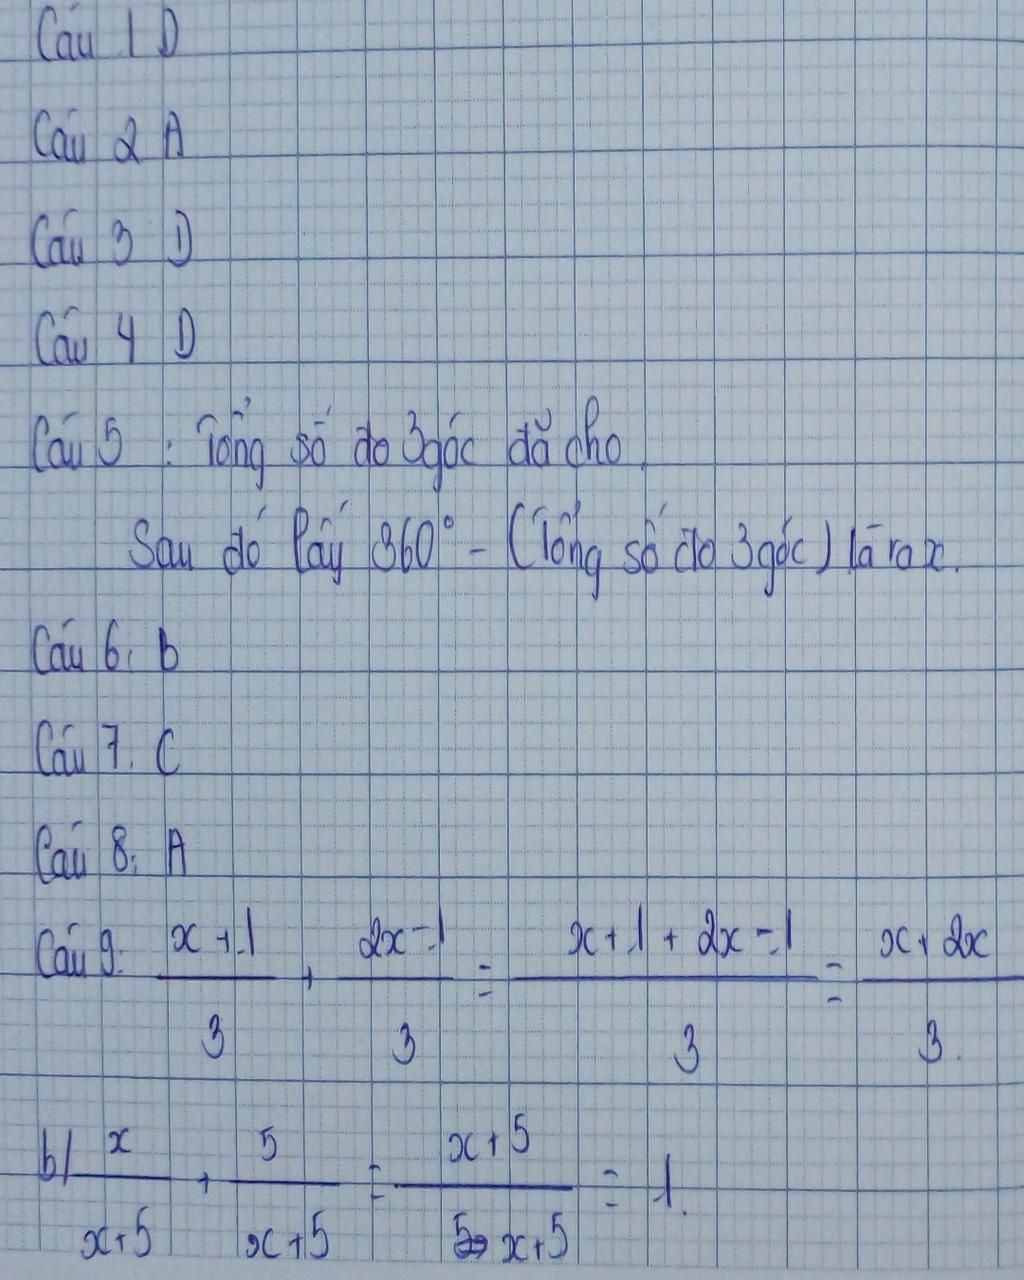 Câu 1 D
Câu 2 A
Câu 3 D
Câu 4 D
Câu 5 : Tổng số đo 3 góc đã cho.
Sau đó lấy 360° - (Tổng số đo 3 góc) là ra x.
Câu 6. b
Câu 7. C
Câu 8. A
Câu 9. x+1/3 + 2x-1/3 = x+1+2x-1/3 = x+2x/3.
b/ x/x+5 + 5/x+5 = x+5/x+5 = 1.